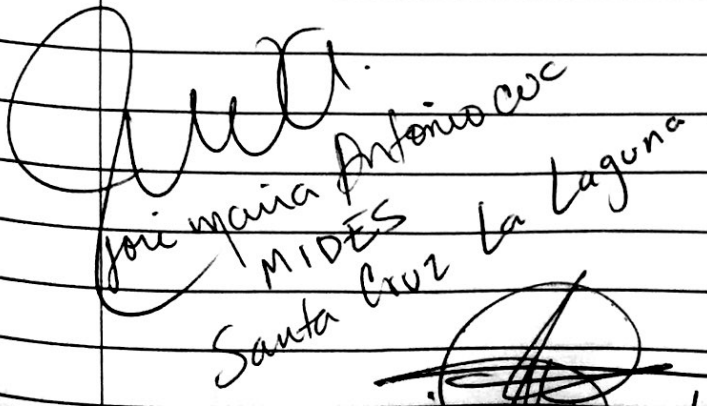 José maria Antonio Cuc
MIDES
Santa Cruz La Laguna